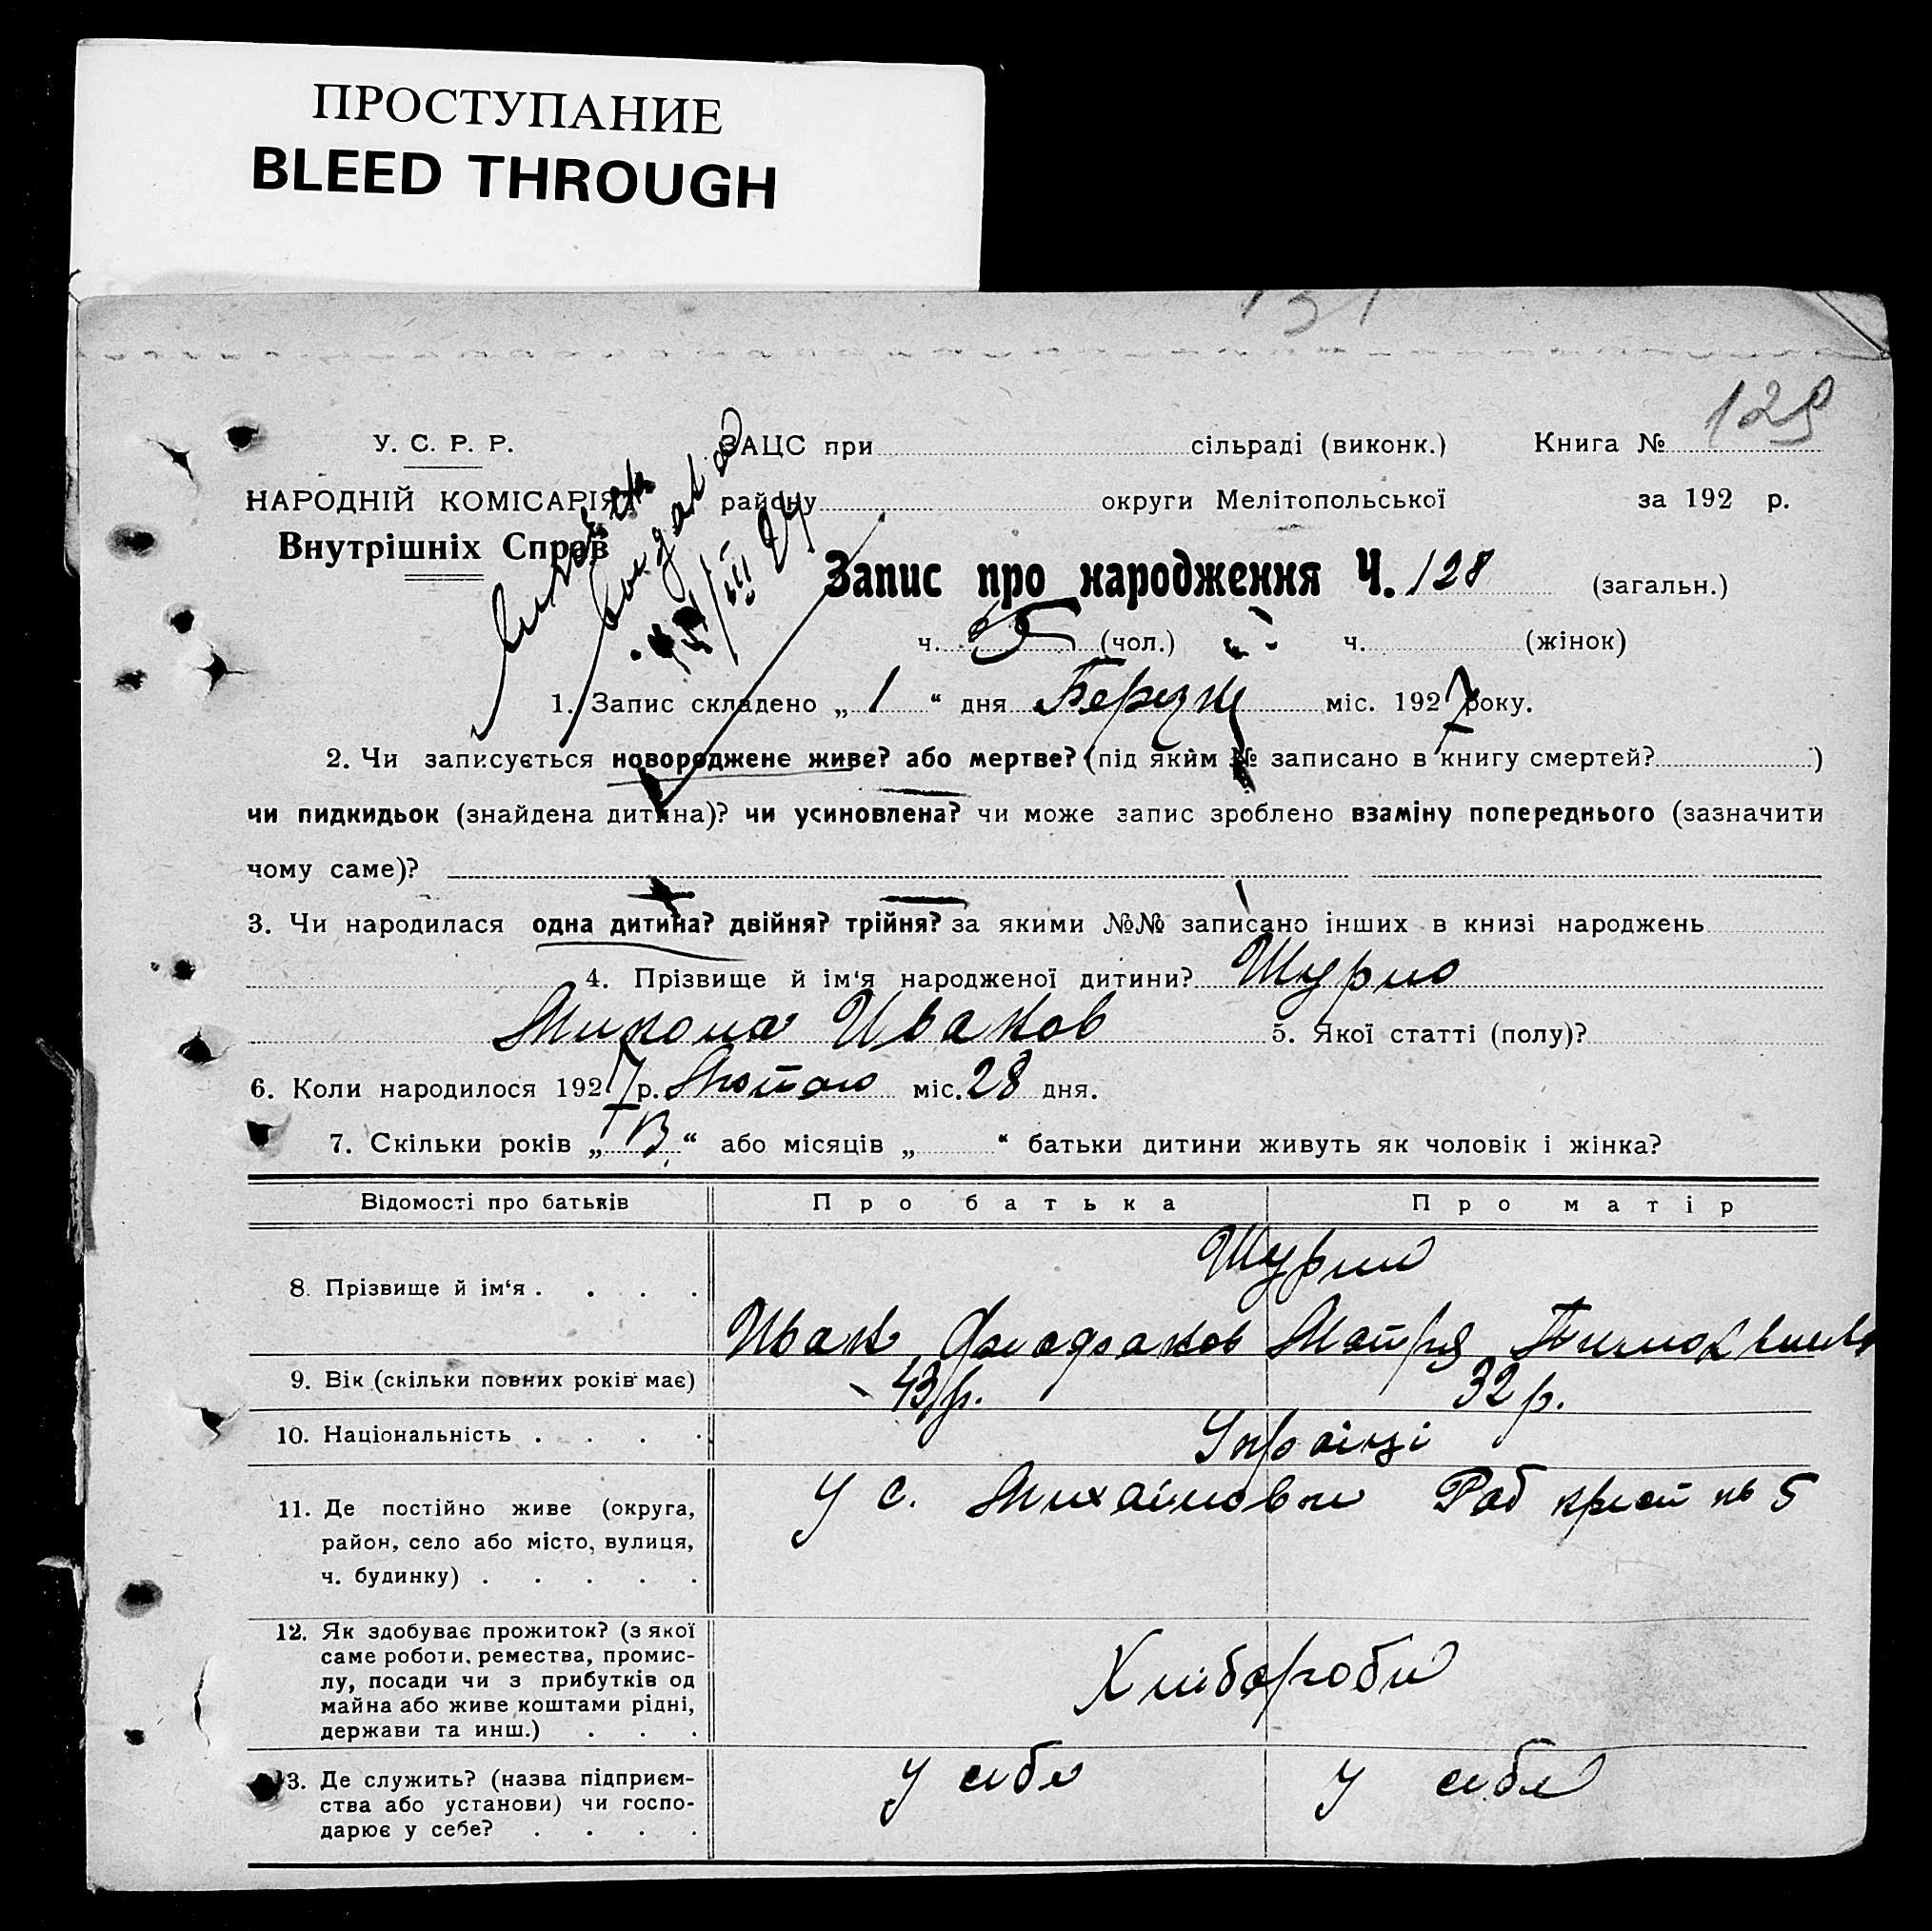 ПРОСТУПАНИЕ
BLEED THROUGH
131
129
У. С. Р. Р.
ЗАЦС при сільраді (виконк.) Книга №
НАРОДНІЙ КОМІСАРІЯТ
району округи Мелітопольської за 192 р.
Внутрішніх Справ
Запис про народження Ч. 128 (загальн.)
ч. (чол.) ч. (жінок)
1. Запис складено „ 1 “ дня міс. 1927 року.
2. Чи записується новороджене живе? або мертве? (під яким № записано в книгу смертей? )
чи пидкидьок (знайдена дитина)? чи усиновлена? чи може запис зроблено взаміну попереднього (зазначити
чому саме)?
3. Чи народилася одна дитина? двійня? трійня? за якими №№ записано інших в книзі народжень
4. Прізвище й ім‘я народженої дитини?
Микола Иванов 5. Якої статті (полу)?
6. Коли народилося 1927 р. Лютого міс. 28 дня.
7. Скільки років „ 13 “ або місяців „ “ батьки дитини живуть як чоловік і жінка?
Відомості про батьків Про батька Про матір
8. Прізвище й ім‘я . . . .
Иван Мотря
9. Вік (скільки повних років має) 43 р. 32 р.
10. Національність . . . . Українці
11. Де постійно живе (округа, У с. Михаіловки Раб крест № 5
район, село або місто, вулиця,
ч. будинку) . . . . .
12. Як здобуває прожиток? (з якої
саме роботи, ремества, промис-
лу, посади чи з прибутків од Хлібороби
майна або живе коштами рідні,
держави та инш.) . . .
13. Де служить? (назва підприєм- У себе У себе
ства або установи) чи госпо-
дарює у себе? . . . .